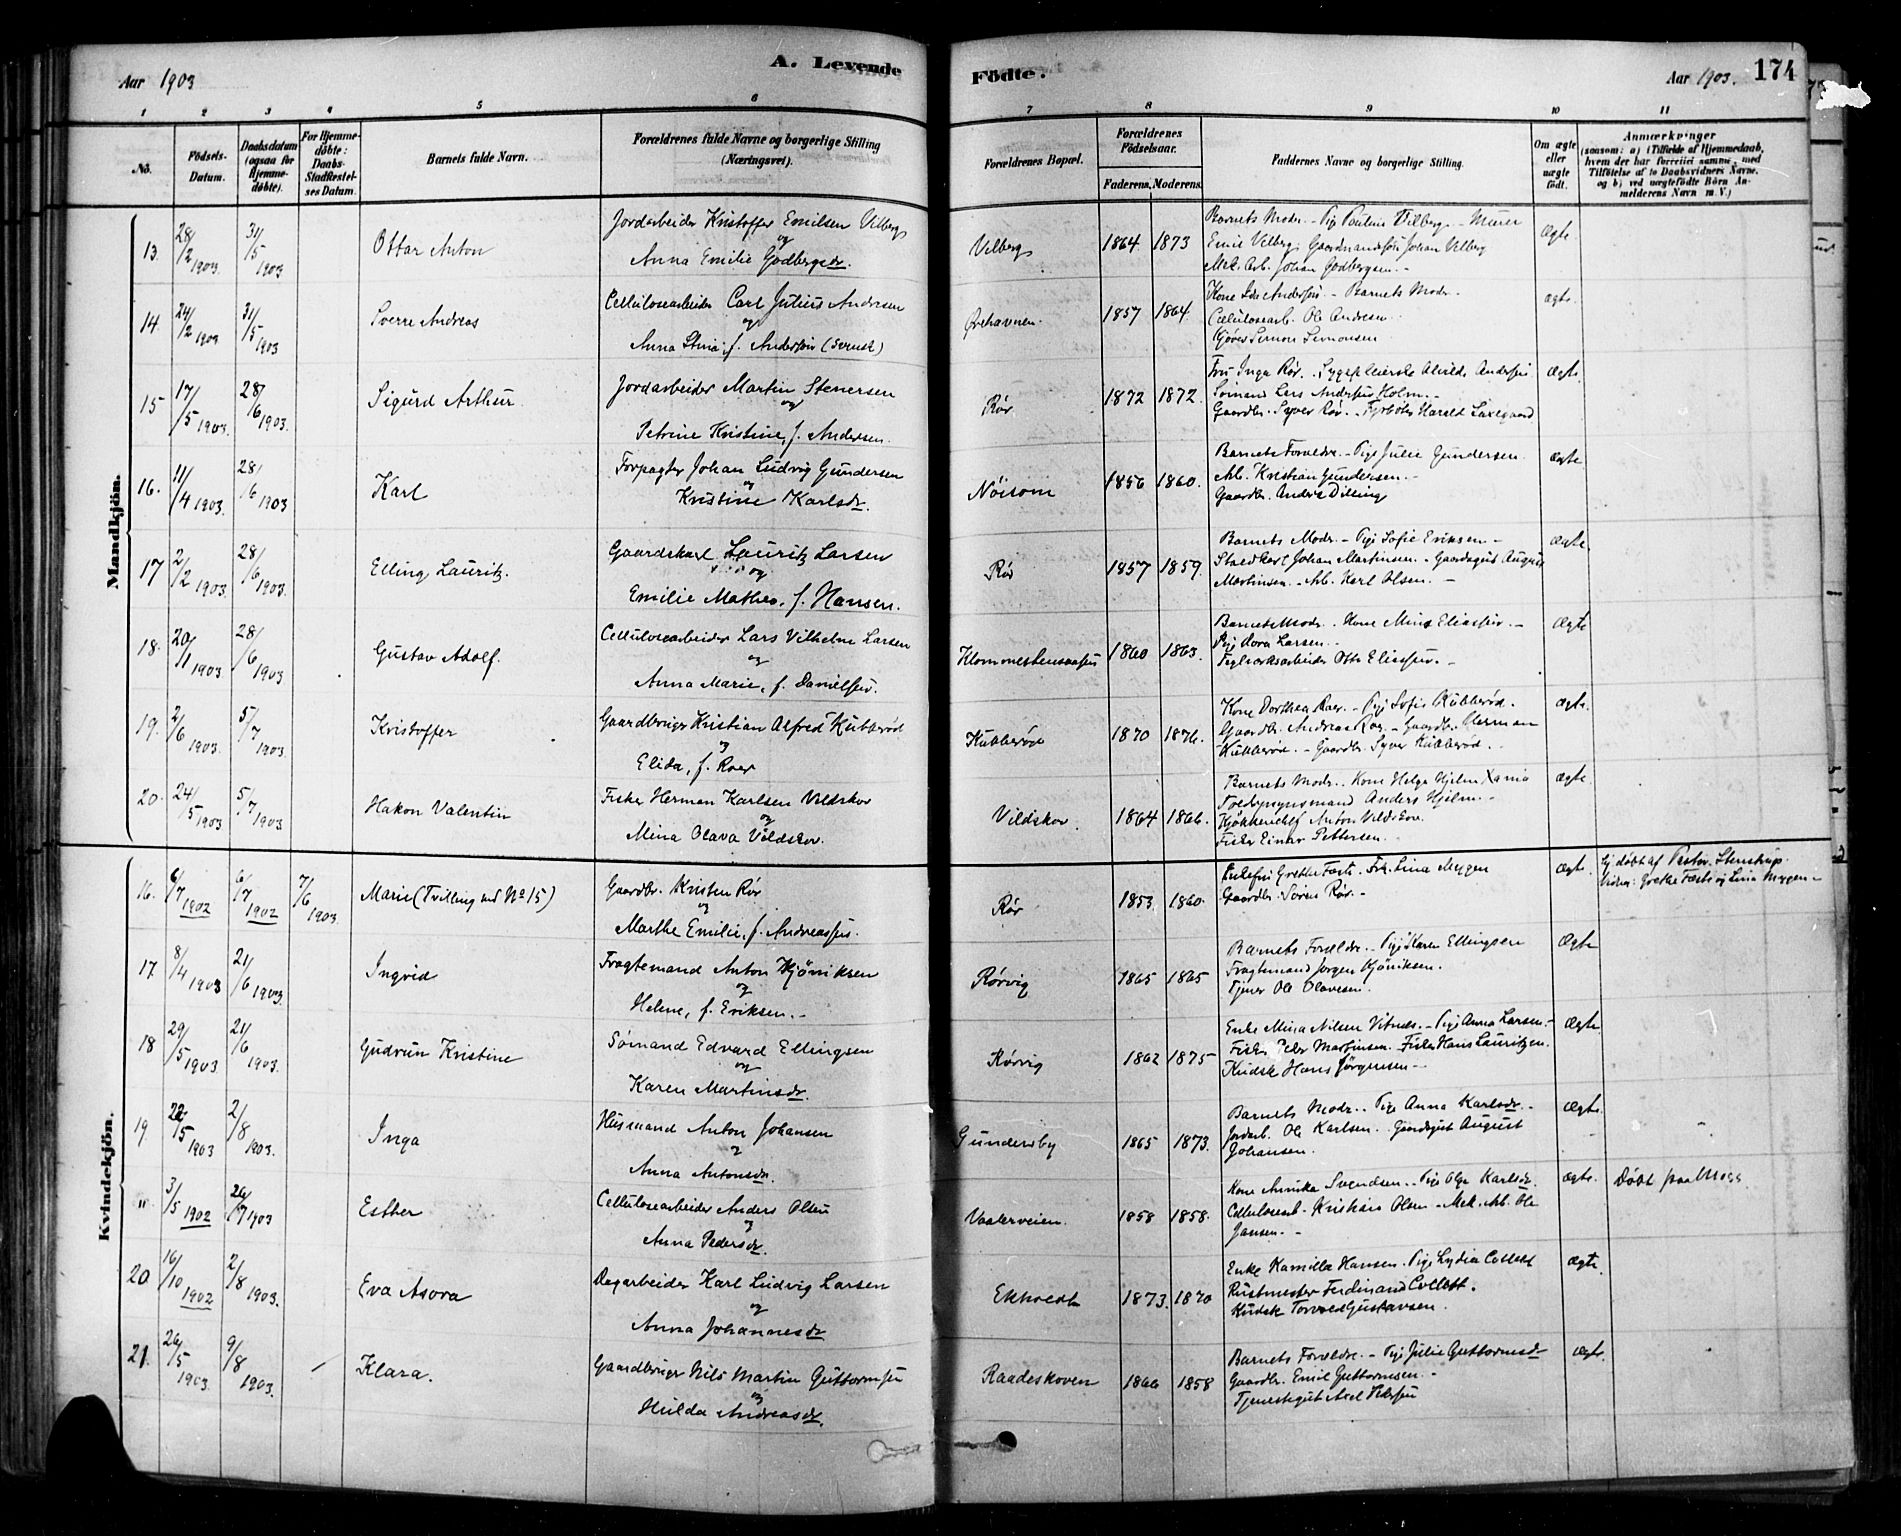 Aar 1903
A. Levende
Fødte.
Aar 1903.
174
1 2 3 4 5 6 7 8 9 10 11
No.
Fødsels-Datum.
Daabsdatum (ogsaa for Hjemmedøbte).
For Hjemmedøbte: Daabs-Stadfæstelses Datum.
Barnets fulde Navn.
Forældrenes fulde Navne og borgerlige Stilling (Næringsvei).
Forældrenes Bopæl.
Forældrenes Fødselsaar.
Faderens. Moderens.
Faddernes Navne og borgerlige Stilling.
Om ægte eller uægte født.
Anmærkninger
(saasom: a) i Tilfælde af Hjemmedaab,
hvem der har forrettet samme, med
Tilføielse af to Daabsvidners Navne,
og b) ved uægtefødte Børn An-
melderens Navn m. V.)
Mandkjøn.
13. 28/2 1903. 31/5 1903 Ottar Anton
Jordarbeider Kristoffer Emilsen Vilberg
og
Anna Emilie Godbergsdr.
Vilberg 1864 1873
Barnets Modr. - Pige Pauline Vilberg - Murer
Emil Vilberg. Gaardmandssøn Johan Vilberg
Mek. Arb. Johan Godbergsen. -
Ægte
14. 24/2 1903 31/5 1903 Sverre Andreas
Cellulosearbeider Carl Julius Andresen
og
Anna Stina, f. Andersen (svensk)
Ørehavnen. 1857 1864
Kone Ida Andersen. - Barnets Modr. -
Cellulosearb. Ole Andresen
Simon Simonsen
ægte
15 17/5 1903. 28/6 1903. Sigurd Arthur.
Jordarbeider Martin Stenersen
og
Petrine Kristine, f. Andersen.
Rør 1872 1872.
Fru Inga Rør. Sygepleierske Alvilde Andersen
Sømand Lars Andersen Holm. -
Gaardbr. Syver Rør. - Fyrbøter Harald Laxegaard
Ægte.
16. 11/4 1903. 28/6 1903 Karl
Forpagter Johan Ludvig Gundersen
og
Kristine Karlsdr.
Nöisom 1856 1860.
Barnets Forældre. - Pige Julie Gundersen.
Arb. Kristian Gundersen. -
Gaardbr. Andrea Dilling
ægte
17 2/2 1903. 28/6 1903. Elling Lauritz.
Gaardskarl Lauritz Larsen
og
Emilie Mathea, f. Hansen.
Rør 1857 1859.
Barnets Modr. - Pige Sofie Eriksen -
Staldkarl Johan Martinsen. - Gaardsgut August
Martinsen. - Arb. Karl Olsen. -
ægte.
18. 20/1 1903. 28/6 1903 Gustav Adolf.
Cellulosearbeider Lars Vilhelm Larsen
og
Anna Marie, f. Danielsen.
1860 1863.
Barnets Modr. Kone Mina Eliassen. -
Pige Dora Larsen. -
Teglværksarbeider Otto Eliassen. -
Ægte
19. 2/6 1903. 5/7 1903. Kristoffer
Gaardbruger Kristian Alfred Kubberød
og
Elida, f. Roer
Kubberød 1870 1876.
Kone Dorthea Roer. - Pige Sofie Kubberød.
Gaardbr. Andreas Roer. - Gaardbr. Herman
Kubberød. - Gaardbr. Syver Kubberød.
ægte.
20. 24/5 1903 5/7 1903 Hakon Valentin
Fisker Herman Karlsen Vildskov
og
Mina Olava Vildskov.
Vildskov. 1864 1866.
Barnets Modr. Kone Helga Hjelm Xania
Anders Hjelm. -
Anton Vildskov.
Fisker Einar Pettersen.
ægte
Kvindekjøn.
16. 6/7 1902 6/7 1902 7/6 1903. Marie (Tvilling med No 15)
Gaardbr. Kristen Rør
og
Marthe Emilie, f. Andreassen.
Rør 1853 1860.
Enkefru Grethe Fæste. Frk. Lina Myggen
Gaardbr. Søren Rør. -
ægte.
Hj.døbt af Pastor Stenstrup.
Vidner: Grethe Fæste og Lina Myggen -
17. 8/4 1903 21/6 1903. Ingrid
Fragtemand Anton Kjöniksen
og
Helene, f. Eriksen. -
Rørvig 1865 1865
Barnets Forældre. - Pige Karen Ellingsen
Fragtemand Jørgen Kjöniksen.
Tjener Ole Olavesen.
Ægte
18 29/5 1903 21/6 1903. Gudrun Kristine
Sømand Edvard Ellingsen
og
Karen Martinsdr.
Rørvig 1862 1875
Enke Mina Nilsen Vitnes. - Pige Anna Larsen. -
Fisker Peder Martinsen. Fisker Hans Lauritzen.
Kudsk Hans Jørgensen -
Ægte
19 22/5 1903 2/8 1903. Inga
Husmand Anton Johansen
og
Anna Antonsdr.
Gundersby 1865 1873.
Barnets Modr. - Pige Anna Karlsdr. -
Jordarb. Ole Karlsen. Gaardsgut August
Johansen.
Ægte.
" 3/5 1902 26/7 1903 Esther
Cellulosearbeider Anders Olsen
og
Anna Pedersdr.
Vaalerveien. 1858 1858.
Kone Annika Svendsen. - Pige Olga Karlsdr.
Cellulosearb. Kristian Olsen - Mek. Arb. Ole
Jansen. -
ægte.
Døbt paa Moss
20. 16/10 1902 2/8 1903. Eva Asora
Dagarbeider Karl Ludvig Larsen
og
Anna Johannesdr
Ekholdt 1873. 1870
Enke Kamilla Hansen. Pige Lydia Collett
Rustmester Ferdinand Collett.
Kudsk Torvald Gustavsen.
ægte.
21. 26/5 1903. 9/8 1903. Klara.
Gaardbruger Nils Martin Guttormsen
og
Hulda Andreasdr.
Raadeskoven 1866 1858
Barnets Forældre. - Pige Julie Guttormsdr
Gaardbr. Emil Guttormsen. -
Tjenestegut Axel Pedersen
ægte.